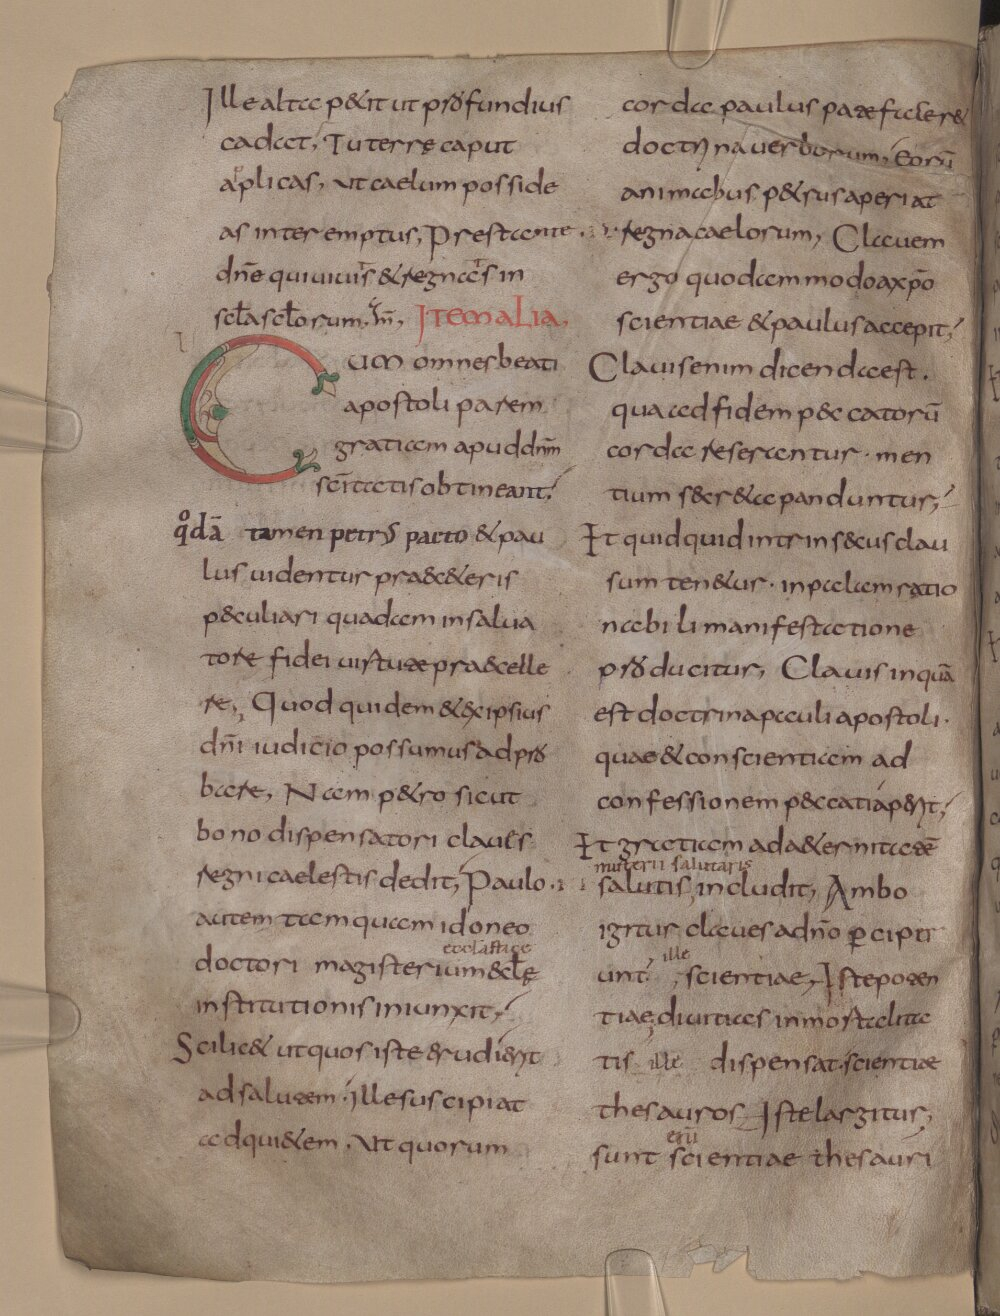 Ille alta petit ut profundius
cadat, Tu terrę caput
aplicas, ut caelum posside
as interemptus, Prestante
dn̄e qui uiuis & regnas in
scl̄a scl̄orum. am̄, ITEM ALIA,
CUM omnes beati
apostoli parem
gratiam apud dn̄m
sc̄itatis obtineant;
q̊dā tamen petrus pacto & pau
lus uidentur praec&eris
peculiari quadam in salua
tore fidei uirtute praecelle
re, Quod quidem & ex ipsius
dn̄i iudicio possumus adpro
bare, Nam petro sicut
bono dispensatori claues
regni caelestis dedit, Paulo
autem tamquam idoneo
ecclasticę
doctori magisterium &cl̄ę
institutionis iniunxit;
Scilic& ut quos iste erudierit
ad salutem. ille suscipiat
ad qui&em. Ut quorum
corda paulus patefecler&
doctrina uerborum, Eorū
animabus p&rus aperiat
regna caelorum, Clauem
ergo quodammodo a xp̄o
scientiae & paulus accepit;
Clauis enim dicenda est.
qua ad fidem peccatorū
corda reserantur. men
tium secr&a panduntur;
Et quidquid intrinsecus clau
sum ten&ur. in palam ratio
nabili manifestatione
producitur, Clauis inquā
est doctrina pauli apostoli.
quae & conscientiam ad
confessionem peccati aperit;
Et gratiam ad a&ernitatē
misterii salutaris
salutis includit, Ambo
igitur claues a dn̄o ꝑcipi
ille
unt, scientiae, Iste poten
tiae, diuitias inmortalita
tis ille dispensat. scientiae
thesauros Iste largitur,
erū
sunt scientiae thesauri